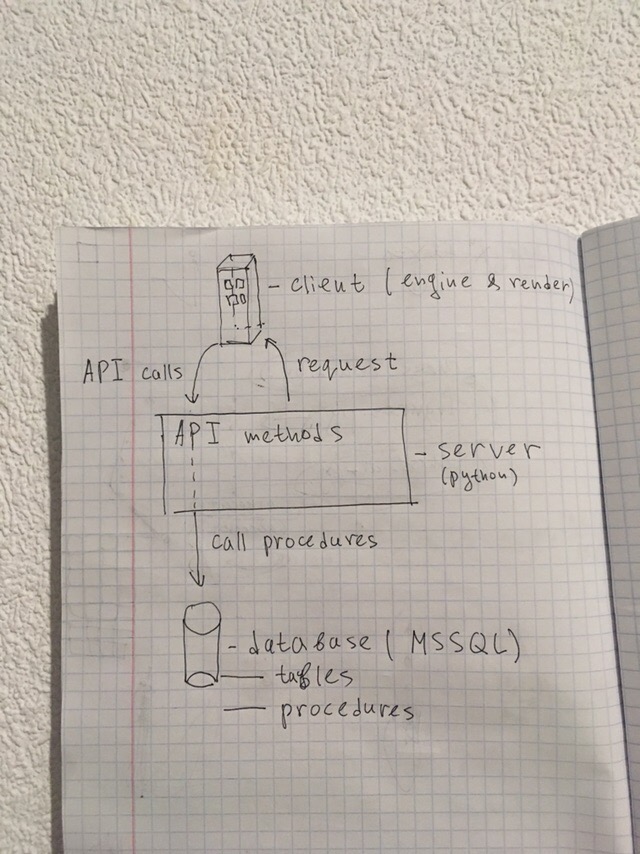 - client (engine & render)
API calls
request
API methods
- server
(python)
call procedures
- database (MSSQL)
— tables
— procedures